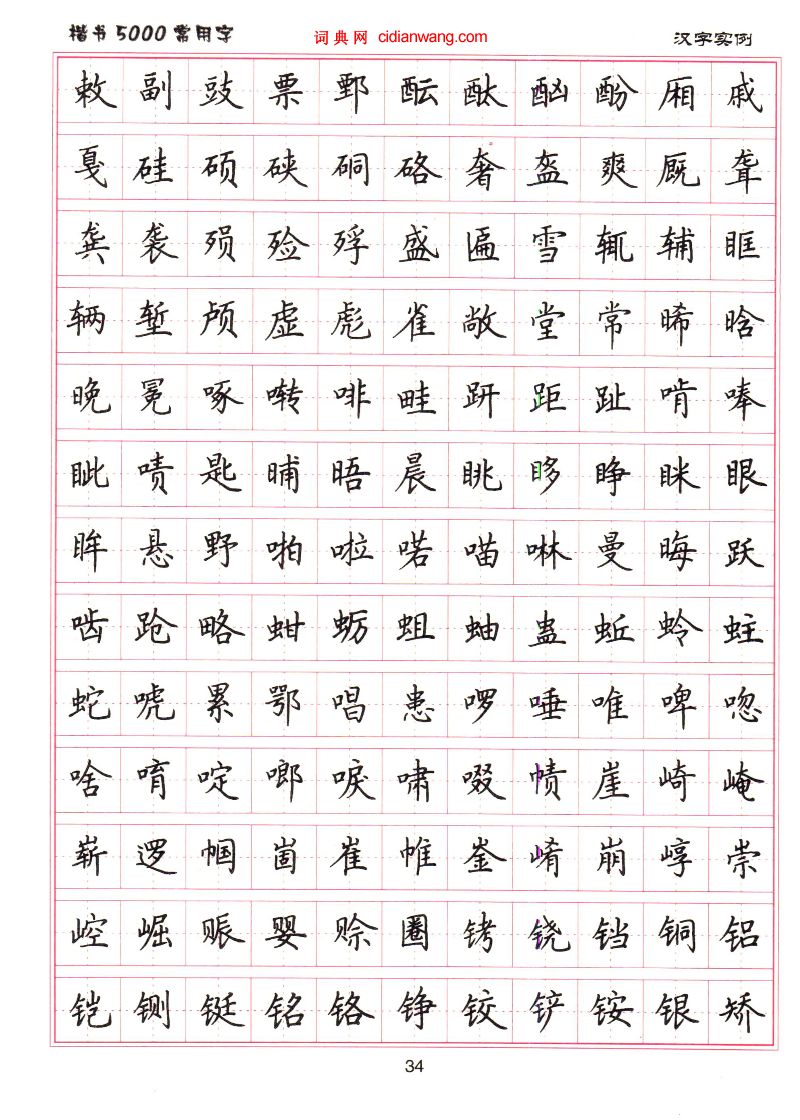 楷书5000常用字 词典网 cidianwang.com 汉字实例
敕副豉票鄄酝酞酗酚厢戚
戛硅硕硖硐硌奢盔爽厩聋
龚袭殒殓殍盛匾雪辄辅眶
辆堑颅虚彪雀敞堂常晞晗
晚冕啄啭啡畦趼距趾啃唪
眦啧匙晡晤晨眺眵睁眯眼
眸悬野啪啦喏喵啉曼晦跃
啮跄略蚶蛎蛆蚰蛊蚯蛉蛀
蛇唬累鄂唱患啰唾唯啤唿
啥唷啶啷唳啸啜帻崖崎崦
崭逻帼崮崔帷崟崤崩崞崇
崆崛赈婴赊圈铐铙铛铜铝
铠铡铤铭铬铮铰铲铵银矫
34